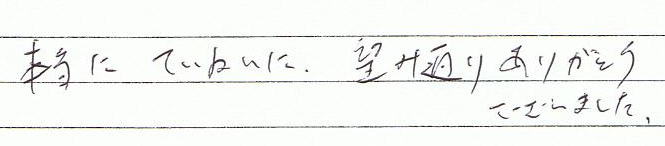 本当に ていねいに. 望み通りありがとう
ございました.